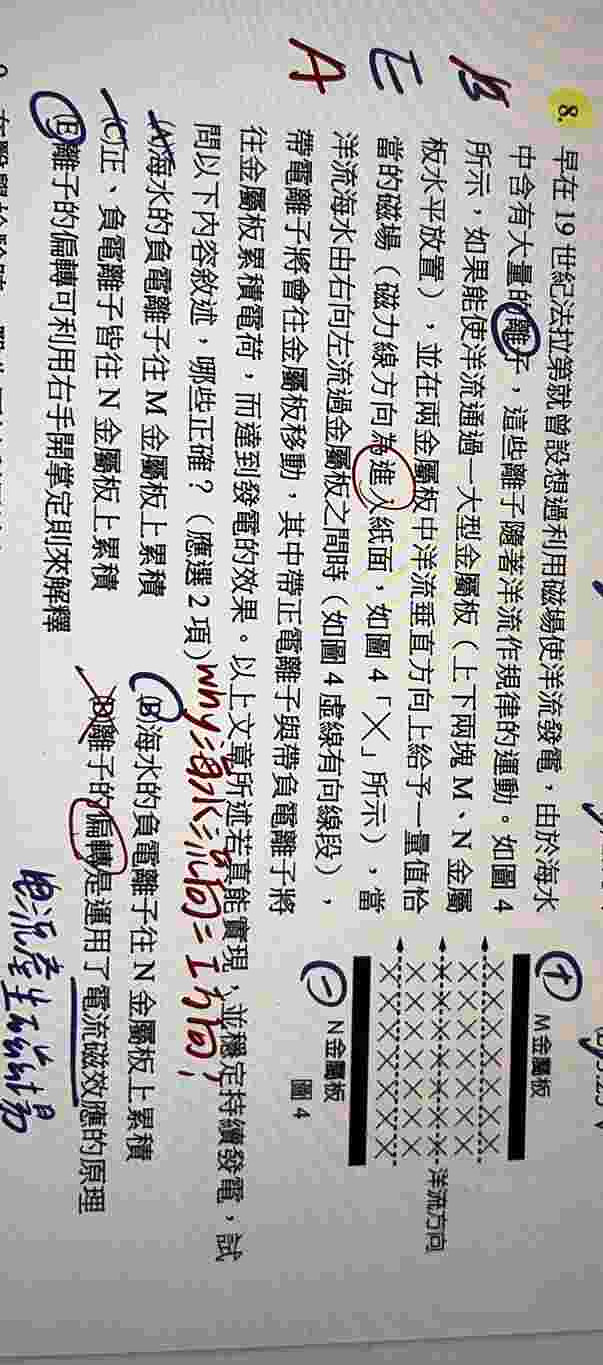 8. 早在 19 世紀法拉第就曾設想過利用磁場使洋流發電，由於海水
中含有大量的離子，這些離子隨著洋流作規律的運動。如圖 4
所示，如果能使洋流通過一大型金屬板（上下兩塊 M、N 金屬
板水平放置），並在兩金屬板中洋流垂直方向上給予一量值恰
當的磁場（磁力線方向為進入紙面，如圖 4「×」所示），當
洋流海水由右向左流過金屬板之間時（如圖 4 虛線有向線段），
帶電離子將會往金屬板移動，其中帶正電離子與帶負電離子將
往金屬板累積電荷，而達到發電的效果。以上文章所述若真能實現，並穩定持續發電，試
問以下內容敘述，哪些正確？（應選 2 項）
why 海水流向=I方向！
(A)海水的負電離子往 M 金屬板上累積
(B)海水的負電離子往 N 金屬板上累積
(C)正、負電離子皆往 N 金屬板上累積
(D)離子的偏轉是運用了電流磁效應的原理
(E)離子的偏轉可利用右手開掌定則來解釋
電流產生磁場
B
E
A
+
M 金屬板
洋流方向
−
N 金屬板
圖 4